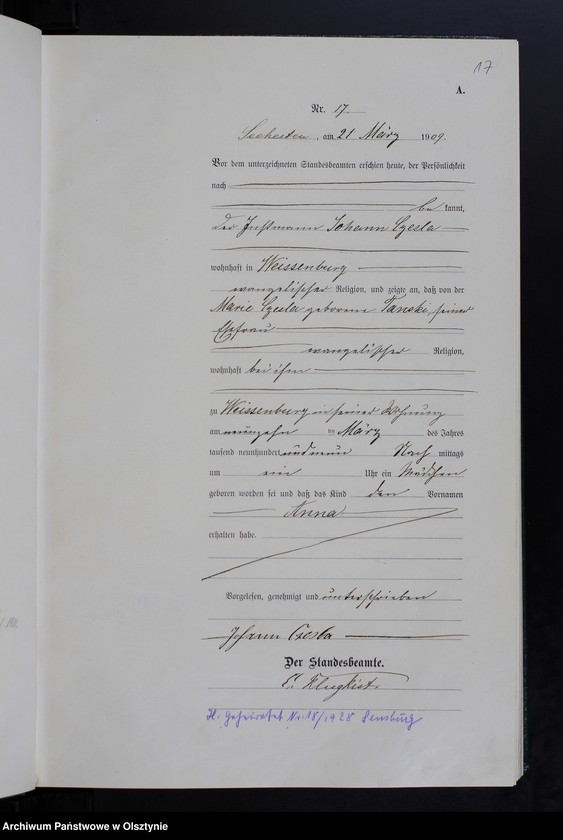 17
A.
Nr. 17
Seehesten, am 21 März 1909.
Vor dem unterzeichneten Standesbeamten erschien heute, der Persönlichkeit
nach
be kannt,
der Instmann Johann Czesla
wohnhaft in Weissenburg
evangelischer Religion, und zeigte an, daß von der
Marie Czesla geborene Tanski, seiner
Ehefrau
evangelischer Religion,
wohnhaft bei ihm
zu Weissenburg in seiner Wohnung
am neunzehn ten März des Jahres
tausend neunhundert und neun Nach mittags
um ein Uhr ein Mädchen
geboren worden sei und daß das Kind den Vornamen
Anna
erhalten habe.
Vorgelesen, genehmigt und unterschrieben
Johann Czesla
Der Standesbeamte.
Klugkist
Geheiratet Nr. 18/1928 Sensburg
Archiwum Państwowe w Olsztynie